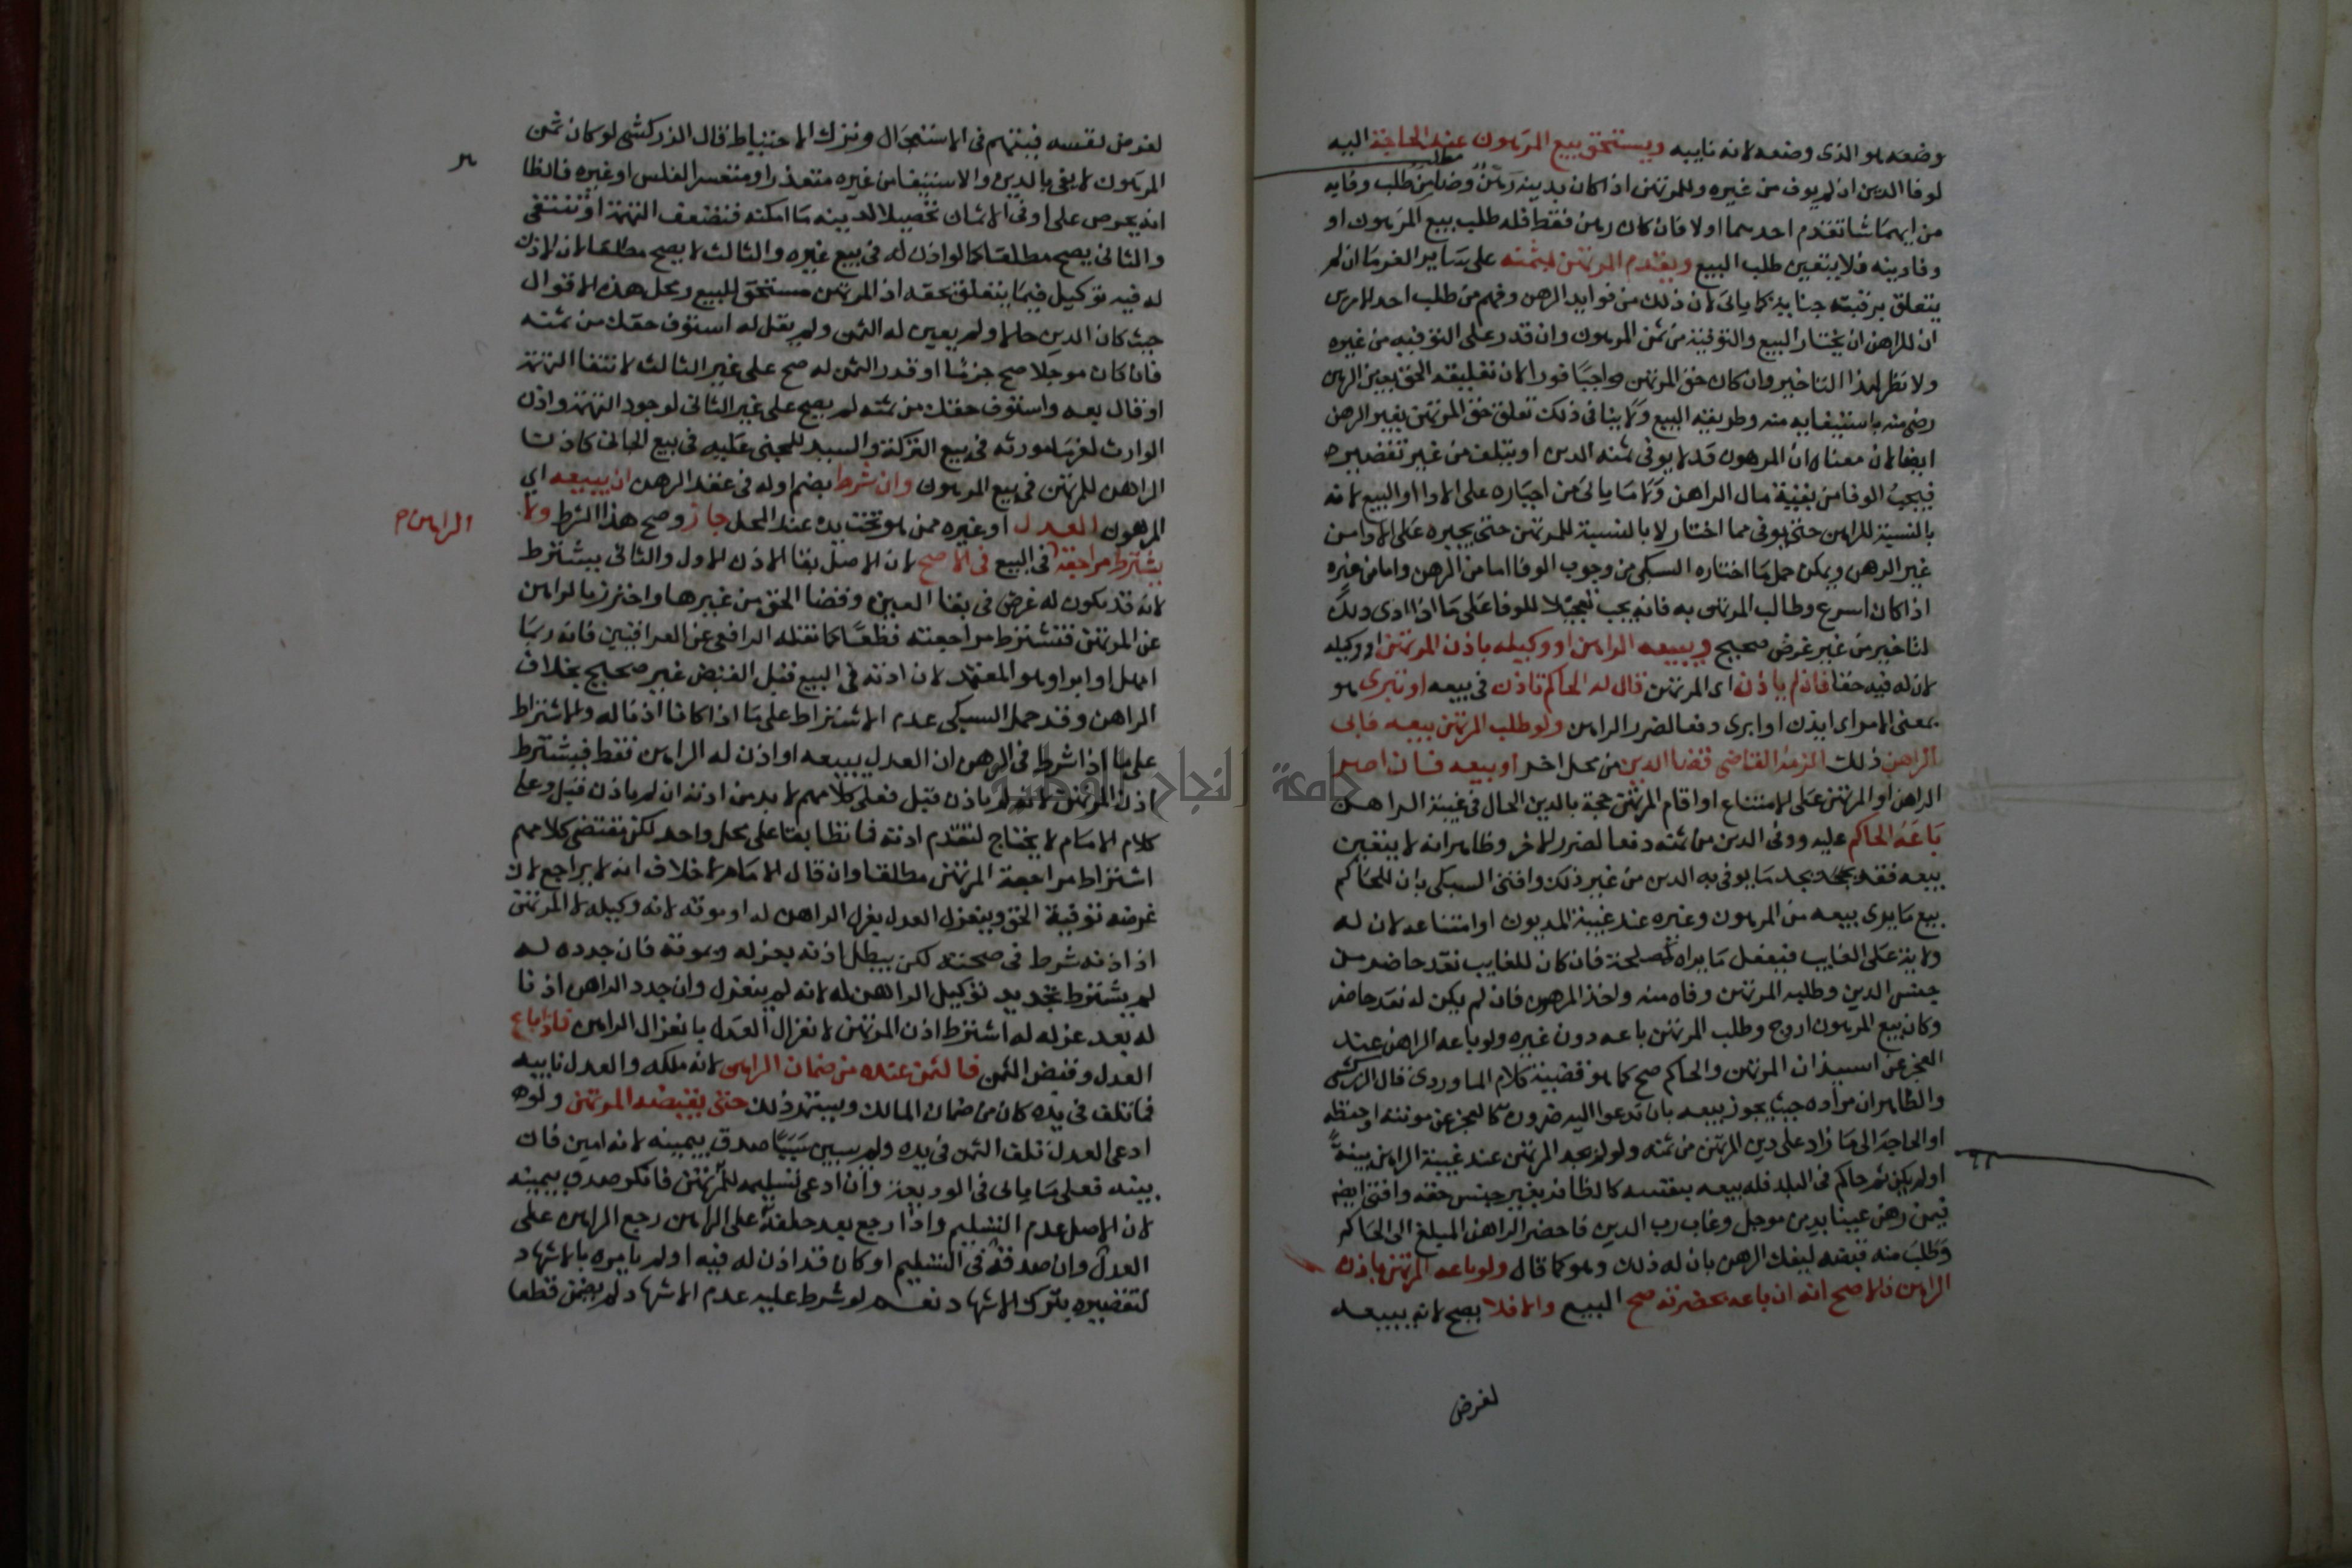 وضعه هو الذى وضعه لانه نايبه ويستحق بيع المرهون عند الحاجة اليه
لوفا الدين ان لم يوف من غيره وللمرتهن اذا كان بدينه رهن وضامن طلب وفايه
من ايهما شا تقدم احدهما اولا فان كان رهن فقط فله طلب بيع المرهون او
وفا دينه فلا يتعين طلب البيع ويقدم المرتهن بثمنه على ساير الغرما ان لم
يتعلق برقبته جناية كما ياتى لان ذلك من فوايد الرهن وفهم من طلب احد الامرين
ان للراهن ان يختار البيع والتوفية من ثمن المرهون وان قدر على التوفية من غيره
ولا نظر لهذا التاخير وان كان حق المرتهن واجبا فورا لان تعليقه الحق بعين الرهن
رضى منه باستيفايه منه وطريقه البيع ولا ينافى ذلك تعلق حق المرتهن بغير الرهن
ايضا لان معناه ان المرهون قد لا يوفى ثمنه الدين او يتلف من غير تقصير
فيجب الوفا من بقية مال الراهن ولا ما ياتى من اجباره على الادا او البيع لانه
بالنسبة للراهن حتى يوفى مما اختار لا بالنسبة للمرتهن حتى يجبره على الادا من
غير الرهن ويمكن حمل ما اختاره السبكى من وجوب الوفا اما من الرهن واما من غيره
اذا كان اسرع وطالب المرتهن به فانه يجب تعجيلا للوفا على ما اذا ادى ذلك
لتاخير من غير غرض صحيح ويبيعه الراهن او وكيله باذن المرتهن او وكيله
لان له فيه حقا فان لم ياذن اى المرتهن قال له الحاكم تاذن فى بيعه او تبرى هو
بمعنى الامر اى ايذن او ابرى دفعا لضرر الراهن ولو طلب المرتهن بيعه فابى
الراهن ذلك الزمه القاضى قضا الدين من محل اخر او بيعه فان اصر
الراهن او المرتهن على الامتناع او اقام المرتهن حجة بالدين الحال فى غيبة الراهن
باعه الحاكم عليه ووفى الدين من ثمنه دفعا لضرر الاخر وظاهر انه لا يتعين
بيعه فقد يجد ما يوفى به الدين من غير ذلك وافتى السبكى بان للحاكم
بيع ما يرى بيعه من المرهون وغيره عند غيبة المديون او امتناعه لان له
ولاية على الغايب فيفعل ما يراه مصلحة فان كان للغايب نقد حاضر من
جنس الدين وطلبه المرتهن وفاه منه واخذ المرهون فان لم يكن له نقد حاضر
وكان بيع المرهون اروج وطلب المرتهن باعه دون غيره ولو باعه الراهن عند
العجز عن استيذان المرتهن والحاكم صح كما هو قضية كلام الماوردى قال الزركشى
والظاهر ان مراده حيث يجوز بيعه بان تدعوا اليه ضرورة كالعجز عن مونته او حفظه
او الحاجة الى ما زاد على دين المرتهن من ثمنه ولو لم يجد المرتهن عند غيبة الراهن بينة
او لم يكن ثم حاكم فى البلد فله بيعه بنفسه كالظافر بغير جنس حقه وافتى ايضا
فيمن رهن عينا بدين موجل وغاب رب الدين فاحضر الراهن المبلغ الى الحاكم
وطلب منه قبضه ليفك الرهن بان له ذلك وهو كما قال ولو باعه المرتهن باذن
الراهن فالاصح انه ان باعه بحضرته صح البيع والا فلا يصح لانه يبيعه
لغرض
لغرض نفسه فيتهم فى الاستعجال وترك الاحتياط قال الزركشى لو كان ثمن
المرهون لا يفى بالدين والاستيفا من غيره متعذر او متعسر لفلس او غيره فالظا
انه يحرص على اوفى الاثمان تحصيلا لدينه ما امكنه فتضعف التهمة او تنتفى
والثانى يصح مطلقا كما لو اذن له فى بيع غيره والثالث لا يصح مطلقا لان الاذن
له فيه توكيل فيما يتعلق بحقه اذ المرتهن مستحق للبيع ومحل هذه الاقوال
حيث كان الدين حالا ولم يعين له الثمن ولم يقل له استوف حقك من ثمنه
فان كان موجلا صح جزما او قدر الثمن له صح على غير الثالث لانتفا التهمة
او قال بعه واستوف حقك من ثمنه لم يصح على غير الثانى لوجود التهمة واذن
الوارث لغرما مورثه فى بيع التركة والسيد للمجنى عليه فى بيع الجانى كاذن
الراهن للمرتهن فى بيع المرهون وان شرط بضم اوله فى عقد الرهن ان يبيعه اي
المرهون العدل او غيره ممن هو تحت يده عند المحل جاز وصح هذا الشرط ولا
يشترط مراجعة فى البيع فى الاصح لان الاصل بقا الاذن الاول والثانى يشترط
الراهن
لانه قد يكون له غرض فى بقا العين وقضا الحق من غيرها واحترز بالراهن
عن المرتهن فتشترط مراجعته قطعا كما نقله الرافعى عن العراقيين فانه ربما
امهل او ابرا وهو المعتمد لان اذنه فى البيع قبل القبض غير صحيح بخلاف
الراهن وقد حمل السبكى عدم الاشتراط على ما اذا كانا اذنا له والاشتراط
على ما اذا شرطا فى الرهن ان العدل يبيعه او اذن له الراهن فقط فيشترط
اذن المرتهن لانه لم ياذن قبل فعلى كلامهم لا بد من اذنه ان لم ياذن قبل وعلى
كلام الامام لا يحتاج لتقدم اذنه فانطابقتا على محل واحد لكن مقتضى كلامهم
اشتراط مراجعة المرتهن مطلقا وان قال الامام لا خلاف انه لا يراجع لان
غرضه توفية الحق وينعزل العدل بعزل الراهن له او موته لانه وكيله لا المرتهن
اذ اذنه شرط فى صحته لكن يبطل اذنه بعزله وبموته فان جدده له
لم يشترط تجديد توكيل الراهن له لانه لم ينعزل وان جدد الراهن اذنا
له بعد عزله له اشترط اذن المرتهن لانعزال العدل بانعزال الراهن فاذا باع
العدل وقبض الثمن فالثمن عنده من ضمان الراهن لانه ملكه والعدل نايبه
فما تلف فى يده كان من ضمان المالك ويستمر ذلك حتى يقبضه المرتهن ولو
ادعى العدل تلف الثمن فى يده ولم يبين سببا صدق بيمينه لانه امين فان
بينه فعلى ما ياتى فى الوديعة وان ادعى تسليمه للمرتهن فانكر صدق بيمينه
لان الاصل عدم التسليم واذا رجع بعد حلفه على الراهن رجع الراهن على
العدل وان صدقه فى التسليم او كان قد اذن له فيه او لم يامره بالاشهاد
لتقصيره بترك الاشهاد نعم لو شرط عليه عدم الاشهاد لم يضمن قطعا
جامعة النجاح الوطنية